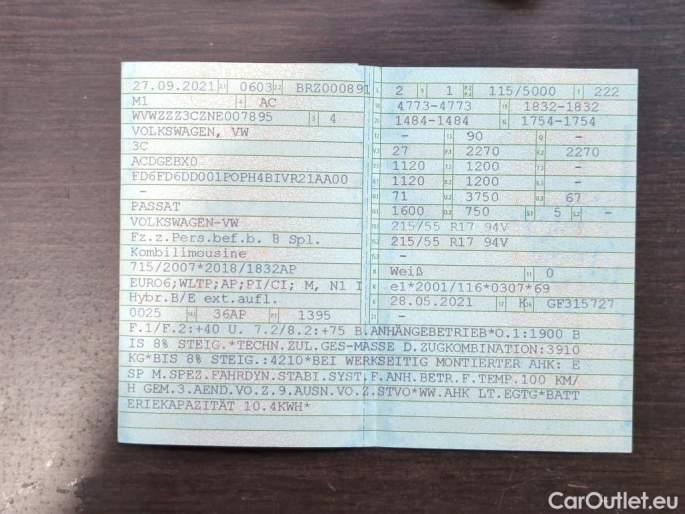 27.09.2021 0603 BRZ000891
M1 AC
WVWZZZ3CZNE007895 4
VOLKSWAGEN, VW
3C
ACDGEBX0
FD6FD6DD001POPH4BIVR21AA00
–
PASSAT
VOLKSWAGEN-VW
Fz.z.Pers.bef.b. 8 Spl.
Kombilimousine
715/2007*2018/1832AP
EURO6;WLTP;AP;PI/CI; M, N1 I
Hybr.B/E ext.aufl.
0025 36AP 1395
2 1 115/5000 222
4773-4773 1832-1832
1484-1484 1754-1754
– 90 –
27 2270 2270
1120 1200 –
1120 1200 –
71 3750 67
1600 750 5 –
215/55 R17 94V
215/55 R17 94V
–
Weiß 0
e1*2001/116*0307*69
28.05.2021 K GF315727
–
F.1/F.2:+40 U. 7.2/8.2:+75 B.ANHÄNGEBETRIEB*O.1:1900 B
IS 8% STEIG.*TECHN.ZUL.GES-MASSE D.ZUGKOMBINATION:3910
KG*BIS 8% STEIG.:4210*BEI WERKSEITIG MONTIERTER AHK: E
SP M.SPEZ.FAHRDYN.STABI.SYST.F.ANH.BETR.F.TEMP.100 KM/
H GEM.3.AEND.VO.Z.9.AUSN.VO.Z.STVO*WW.AHK LT.EGTG*BATT
ERIEKAPAZITÄT 10.4KWH*
CarOutlet.eu